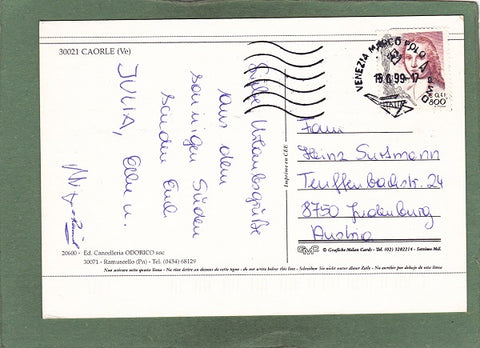 30021 CAORLE (Ve)
Liebe Urlaubsgrüße
aus dem
sonnigen Süden
senden Euch
JULIA, Elke u.
VENEZIA MARCO POLO A.
18.6.99.-17
800
Fam.
Heinz
Teuffenbachstr. 24
8750 Judenburg
Austria
Imprimé en CEE
20600 - Ed. Cancelleria ODORICO snc
30071 - Ramuscello (Pn) - Tel. (0434) 68129
© Grafiche Milan Cards - Tel. (02) 3282214 - Settimo Mil.
Non scrivere sotto questa linea - Ne rien écrire au dessous de cette ligne - do not write below this line - Schreiben Sie nicht unter dieser Zeile - No escribir por debajo de esta línea